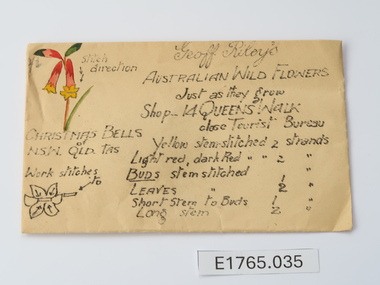 Geoff Riley's
Stitch
direction
AUSTRALIAN WILD FLOWERS
Just as they grow
Shop... 14 QUEENS WALK
close Tourist Bureau
CHRISTMAS BELLS
of
N.S.W. QLD. TAS
Yellow stem-stitched 2 strands
Light red, dark Red " " 2 "
Work stitches
to
BUDS stem stitched 1 "
LEAVES " 2 "
Short Stem to Buds 1 "
Long stem 2 "
E1765.035